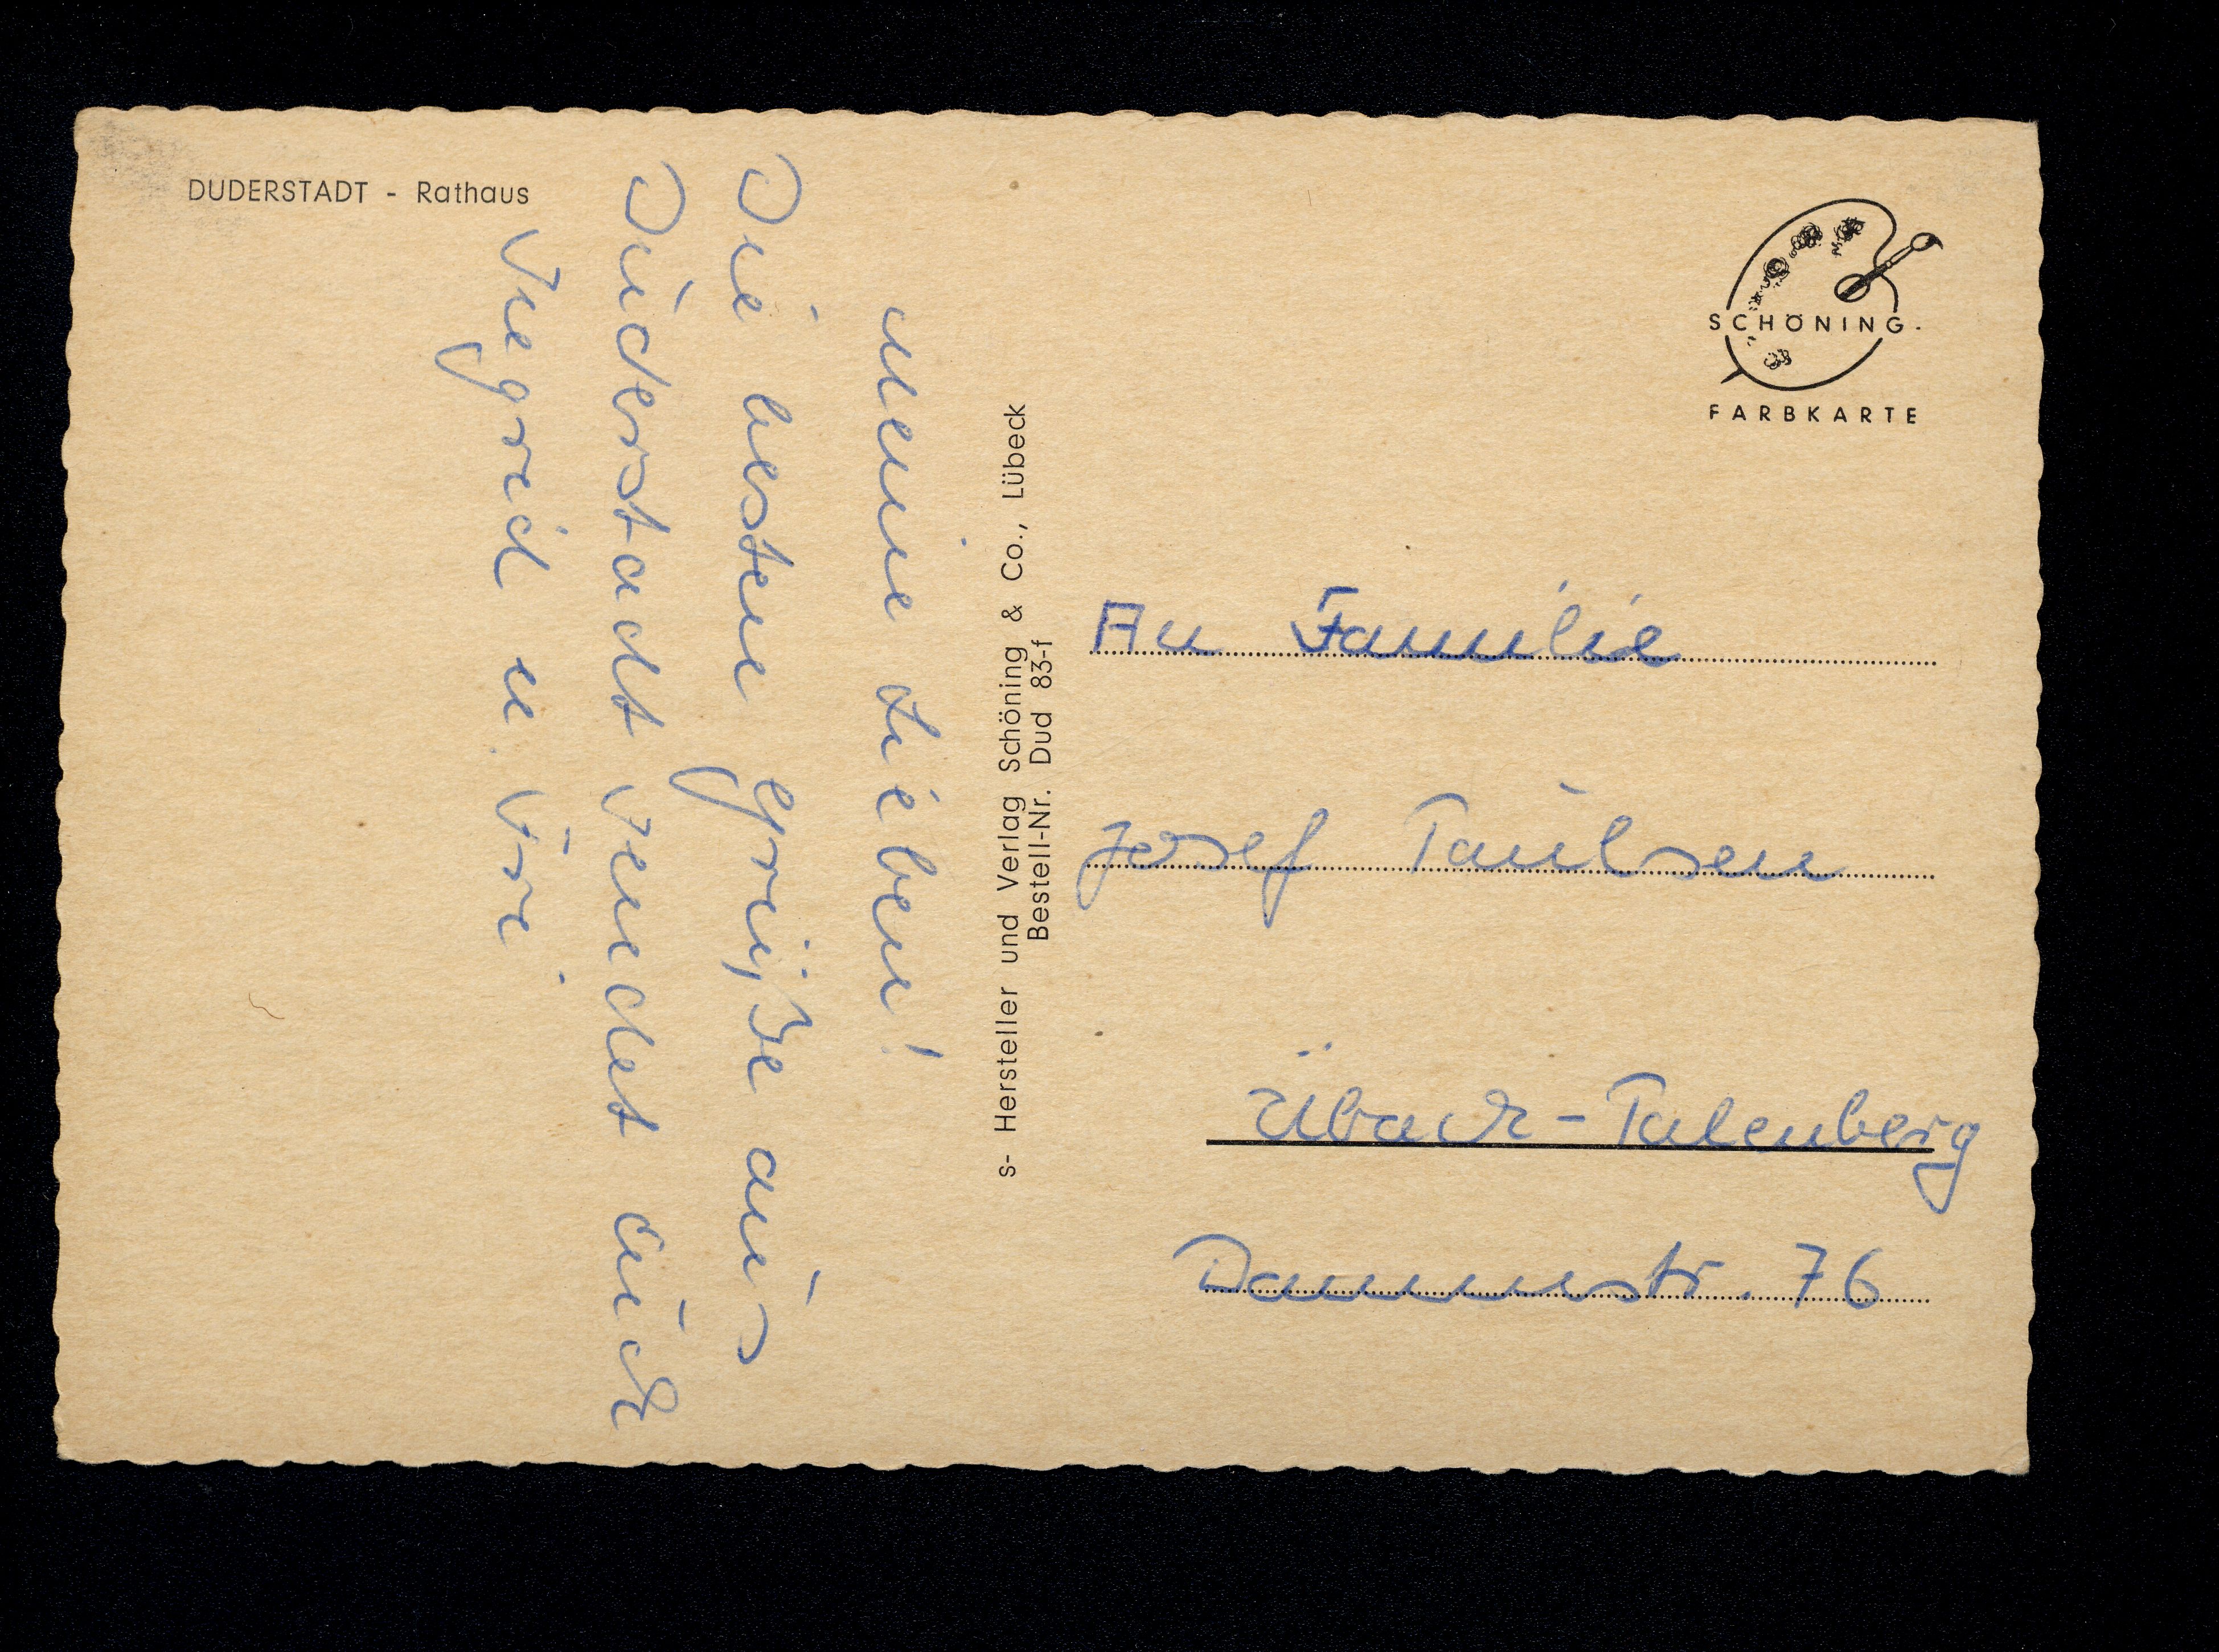 DUDERSTADT - Rathaus
Meine Lieben!
Die besten Grüße aus
Duderstadt sendet euch
Ingrid u.
s- Hersteller und Verlag Schöning & Co., Lübeck
Bestell-Nr. Dud 83-f
SCHÖNING-
FARBKARTE
An Familie
Josef Paulsen
Übach-Palenberg
Dammstr. 76